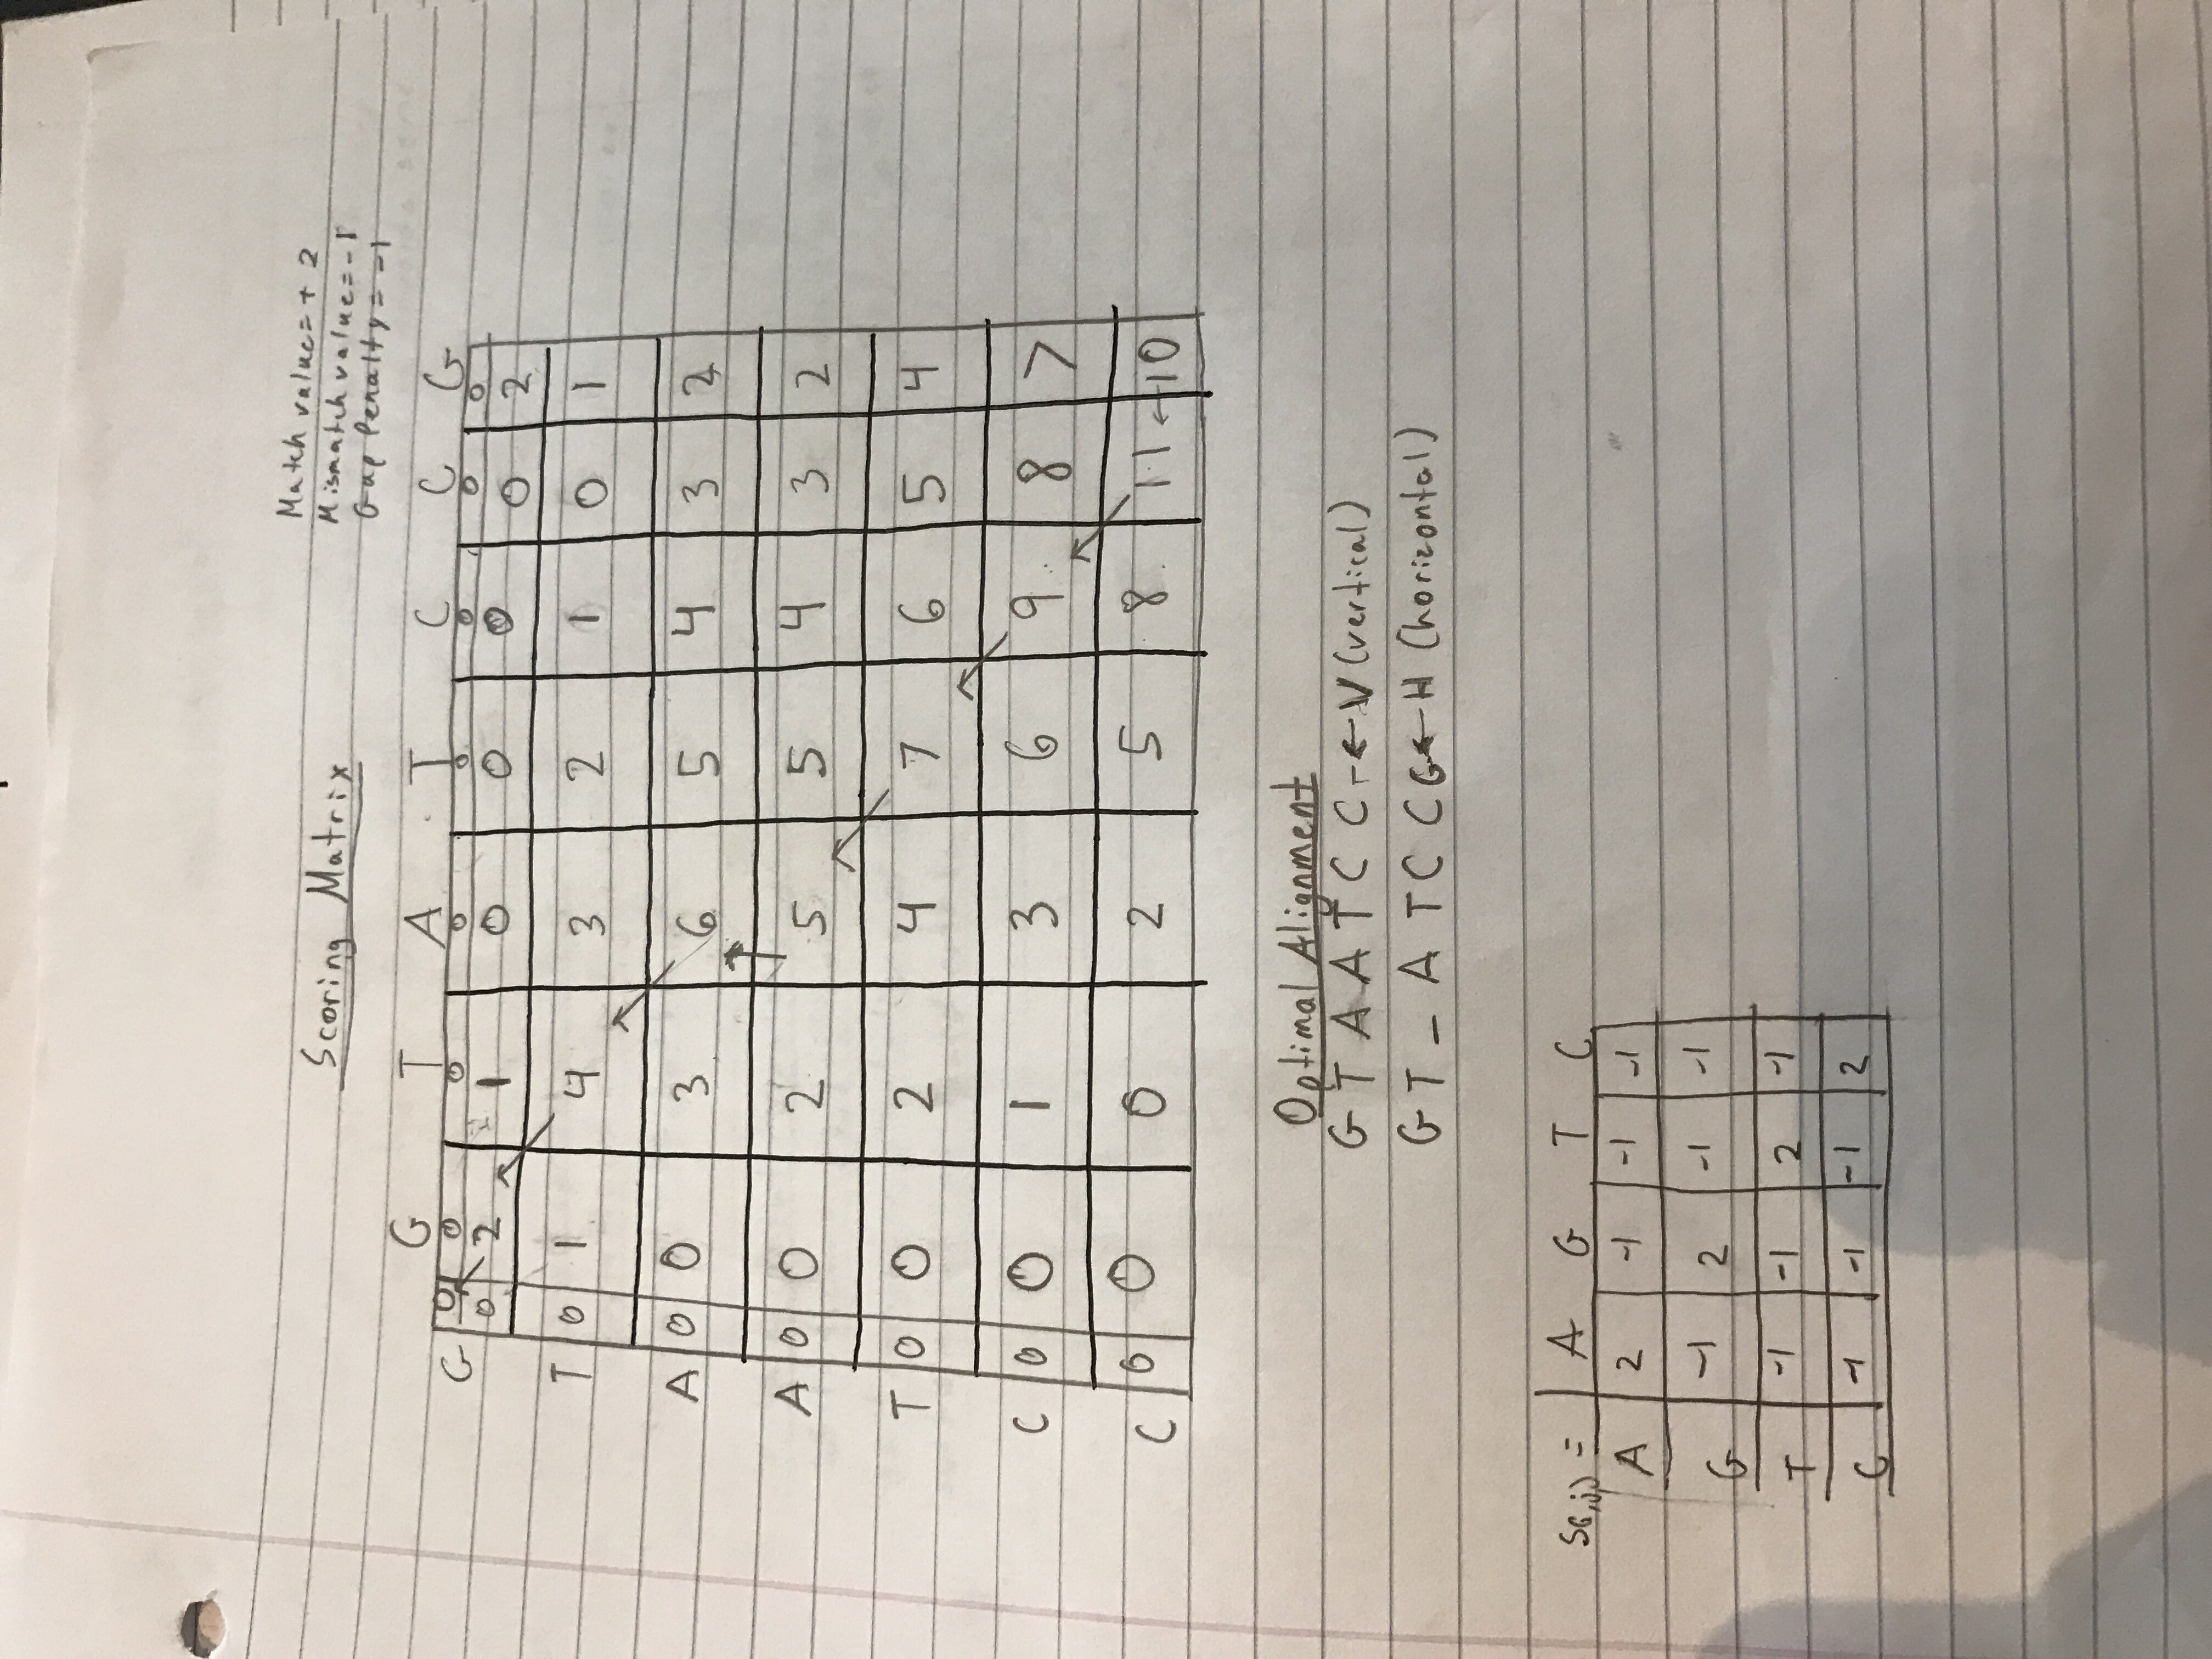 Match value = + 2
Mismatch value = -1
Gap Penalty = -1
Scoring Matrix
G T A T C C G
0 0 0 0 0 0 0 0
G 0 2 1 0 0 0 0 2
T 0 1 4 3 2 1 0 1
A 0 0 3 6 5 4 3 2
A 0 0 2 5 5 4 3 2
T 0 0 2 4 7 6 5 4
C 0 0 1 3 6 9 8 7
C 0 0 0 2 5 8 11 ← 10
Optimal Alignment
G T A A T C C - ← V (vertical)
G T - A T C C G ← H (horizontal)
S(i,j) = A G T C
A 2 -1 -1 -1
G -1 2 -1 -1
T -1 -1 2 -1
C -1 -1 -1 2